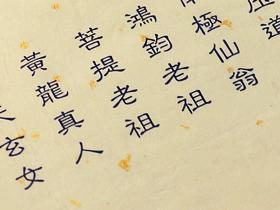 虛道
南極仙翁
鴻鈞老祖
菩提老祖
黃龍真人
天玄女